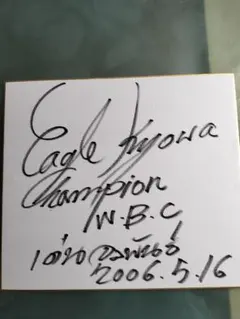 Eagle Kyowa
Champion
W.B.C
เด่น จุลพันธ์
2006.5.16